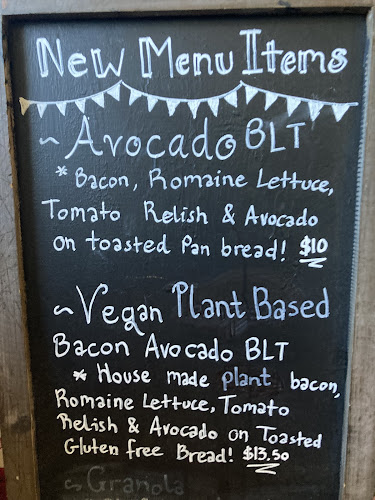 New Menu Items
~ Avocado BLT
* Bacon, Romaine Lettuce,
Tomato Relish & Avocado
on toasted Pan bread! $10
~ Vegan Plant Based
Bacon Avocado BLT
* House made plant bacon,
Romaine Lettuce, Tomato
Relish & Avocado on Toasted
Gluten free Bread! $13.50
~ Granola